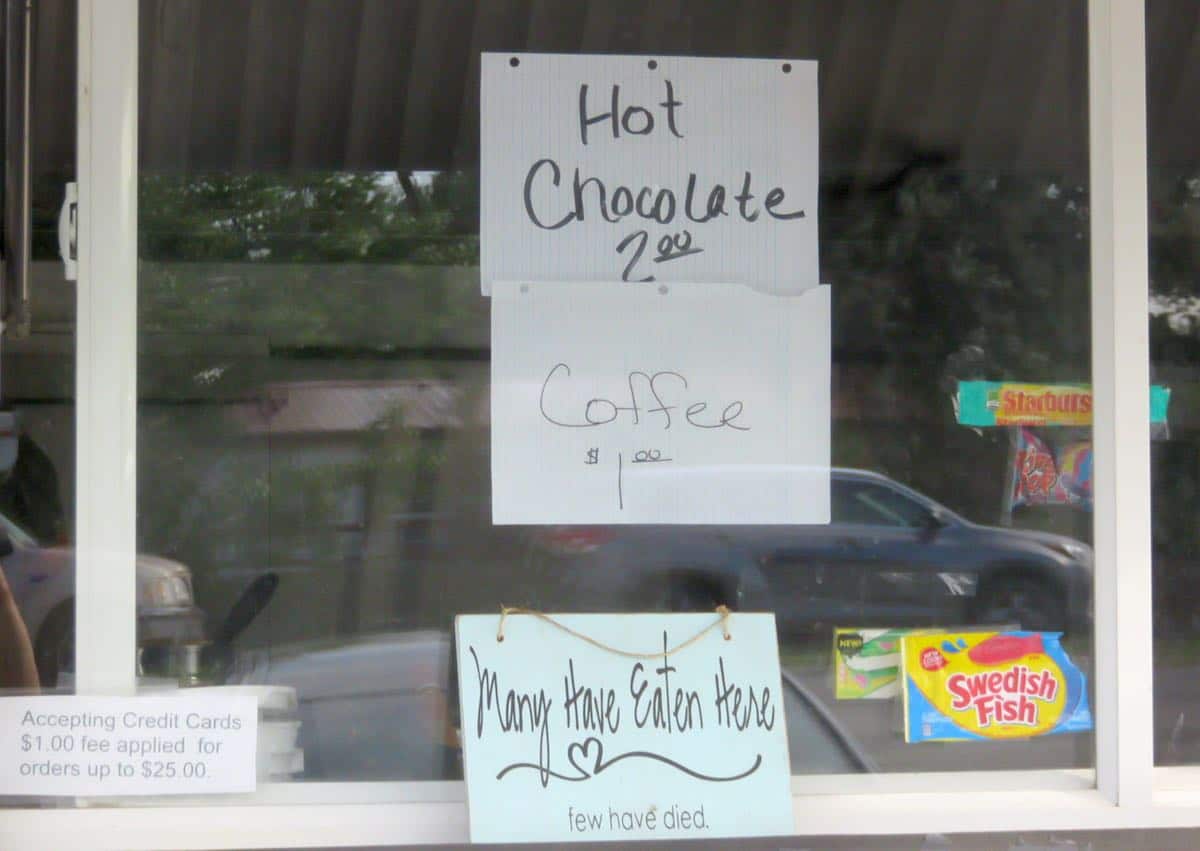 Hot
Chocolate
2.00
Coffee
$1.00
Starburs
NEW!
Swedish
Fish
Many Have Eaten Here
few have died.
Accepting Credit Cards
$1.00 fee applied for
orders up to $25.00.